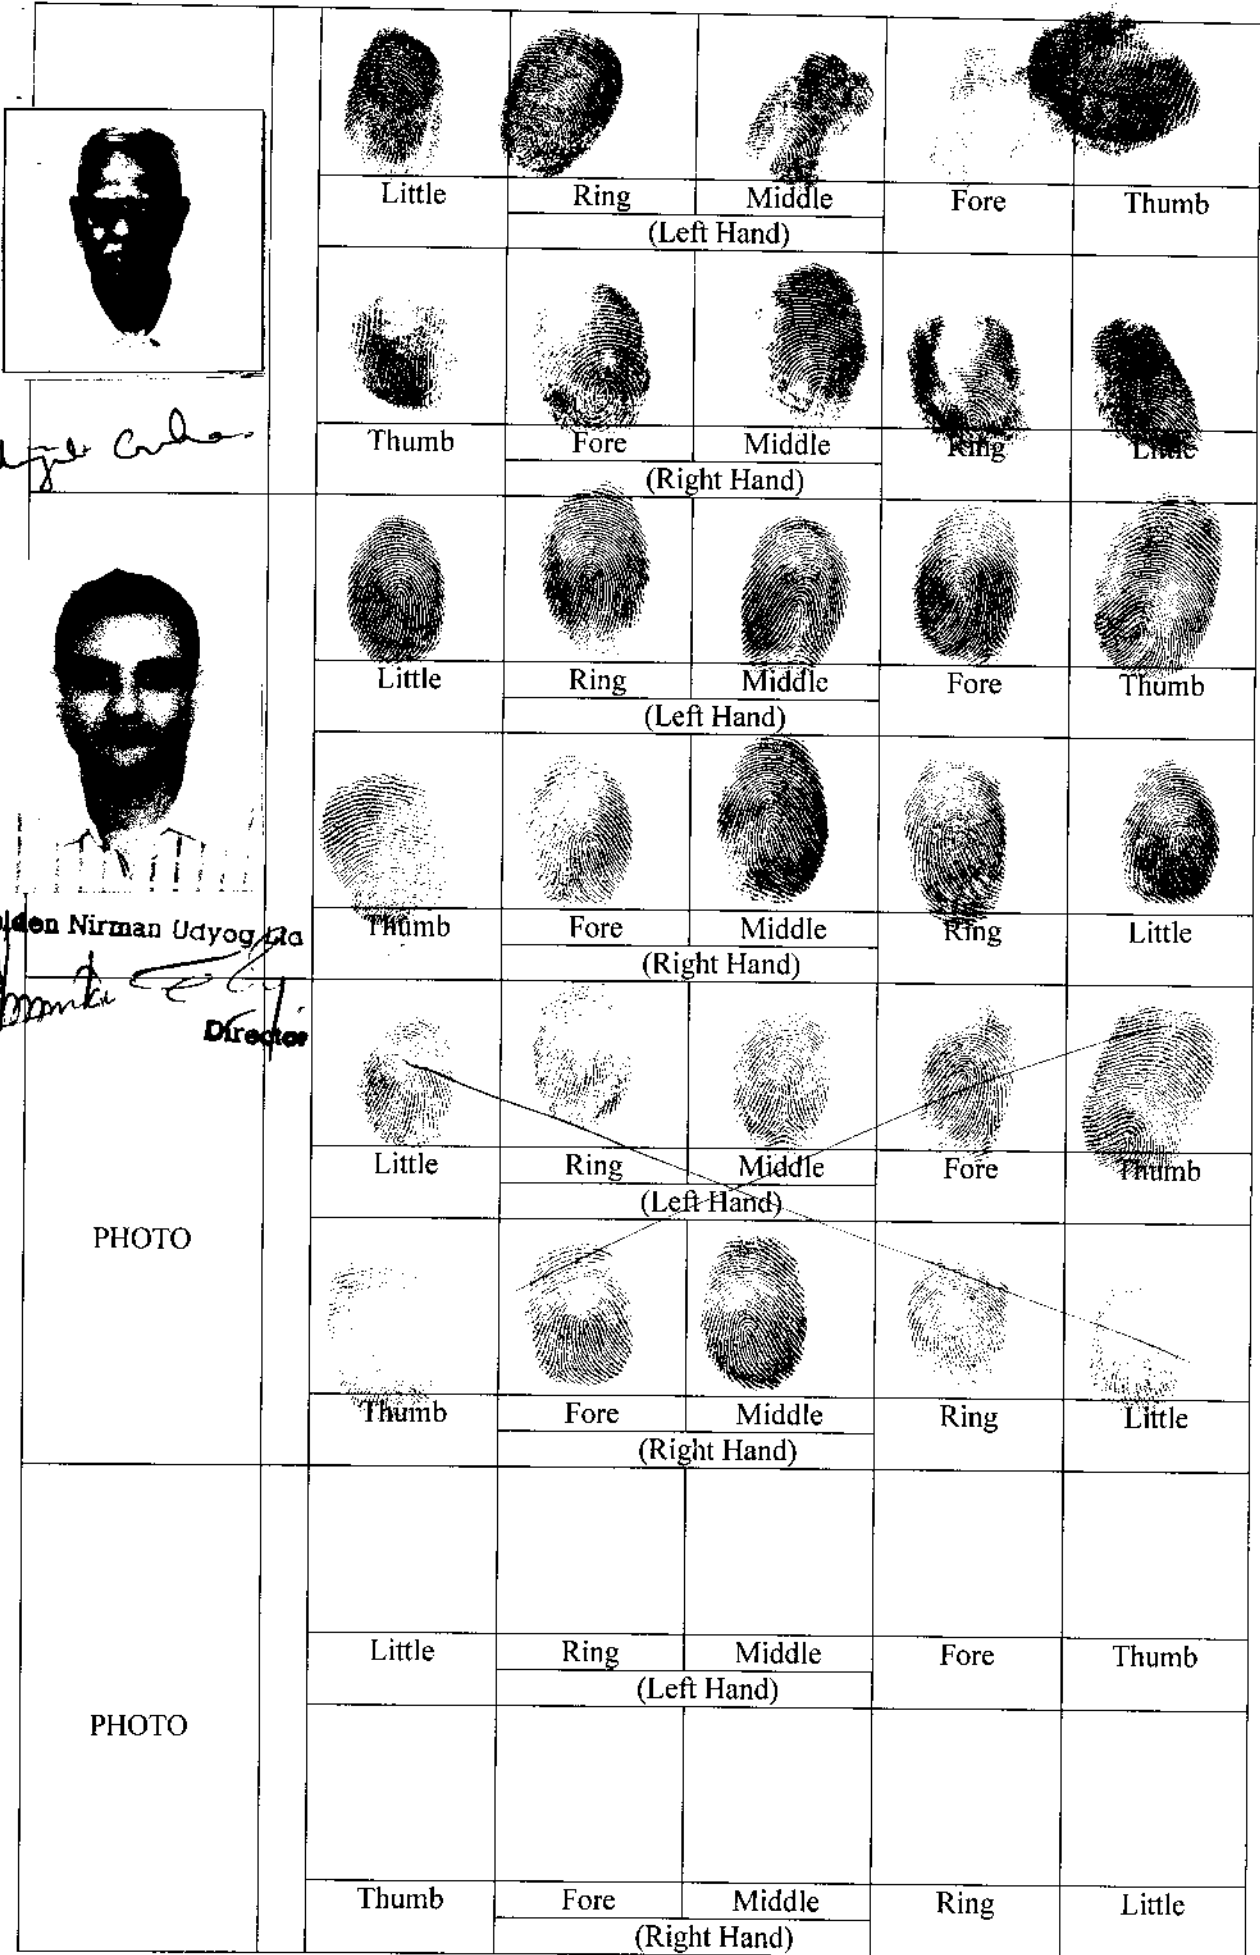 Little Ring Middle Fore Thumb
(Left Hand)
Thumb Fore Middle Ring Little
(Right Hand)
Little Ring Middle Fore Thumb
(Left Hand)
Thumb Fore Middle Ring Little
(Right Hand)
lden Nirman Udyog
Director
Little Ring Middle Fore Thumb
(Left Hand)
PHOTO
Thumb Fore Middle Ring Little
(Right Hand)
Little Ring Middle Fore Thumb
(Left Hand)
PHOTO
Thumb Fore Middle Ring Little
(Right Hand)